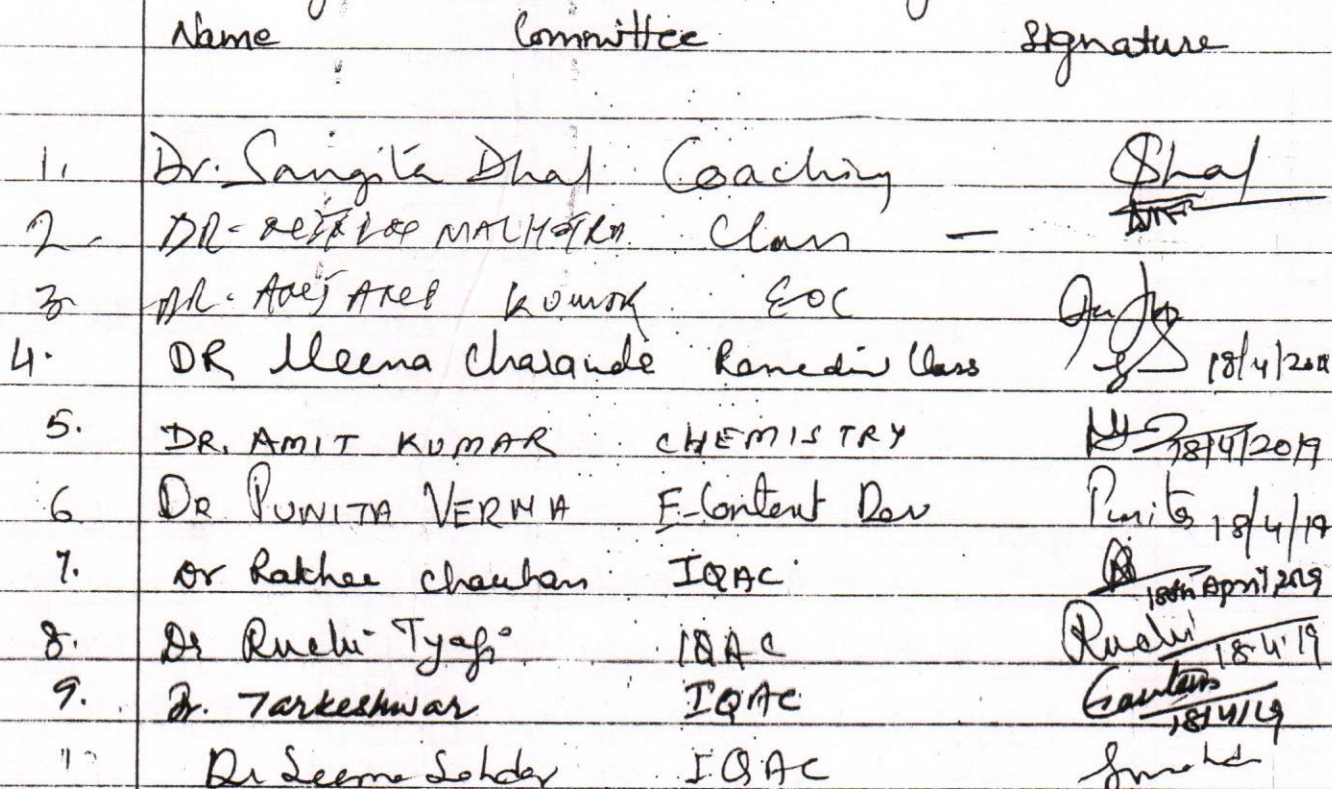 Name Committee Signature
1. Dr. Sangita Dhal Coaching Dhal
2. DR. MALHOTRA Class -
3. DR. KUMAR EOC
4. DR Meena Charande Remedial Class 18/4/2019
5. DR. AMIT KUMAR CHEMISTRY 18/4/2019
6 DR PUNITA VERMA E-Content Dev Punita 18/4/19
7. Dr Rakhee Chauhan IQAC 18th April 2019
8. Dr Ruchi Tyagi IQAC Ruchi 18.4.19
9. Dr. Tarkeshwar IQAC Gautam 18/4/19
10 Dr Seema Sahdev IQAC